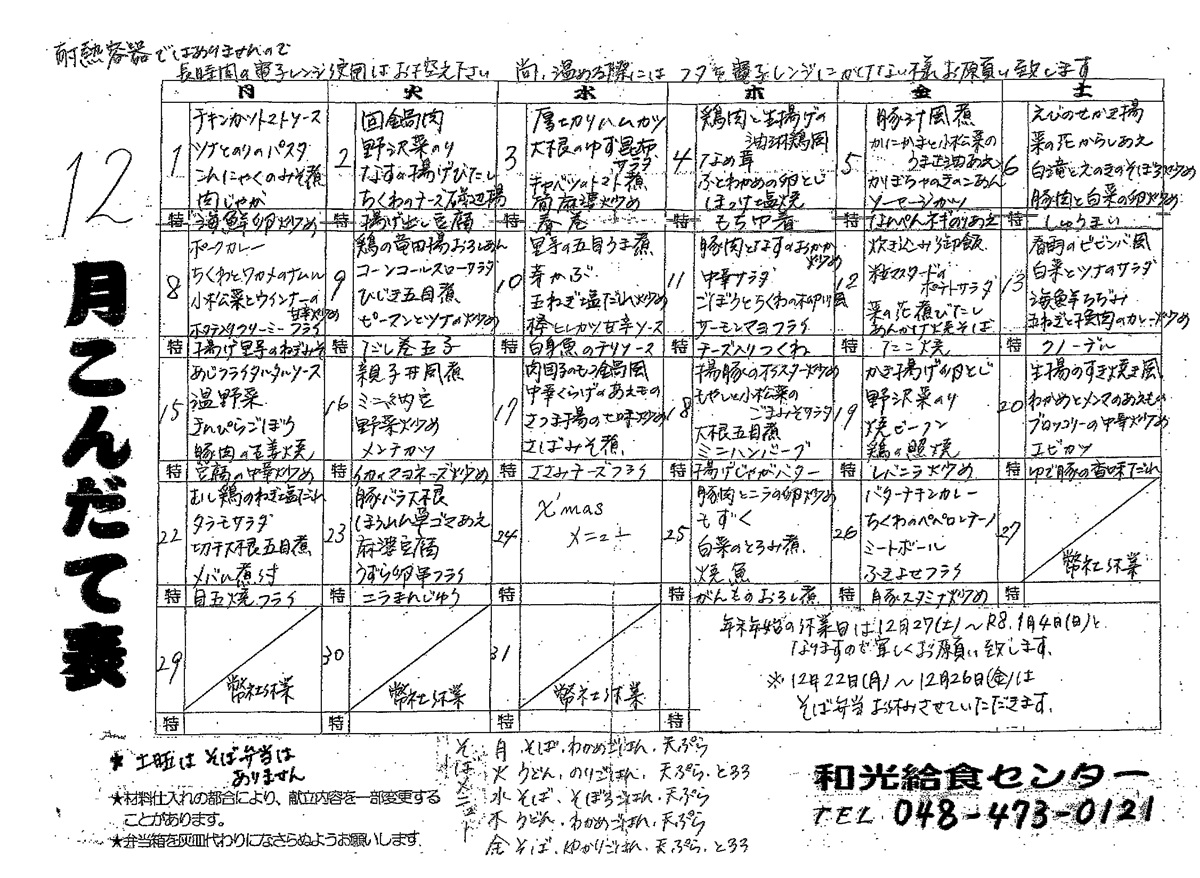 耐熱容器ではありませんので
長時間の電子レンジ使用はお控え下さい 尚、温める際には フタを電子レンジにかけない様お願い致します
12月こんだて表
月 火 水 木 金 土
1
チキンカツトマトソース
ツナとのりのパスタ
こんにゃくのみそ煮
肉じゃが
特 海鮮卵炒め
2
回鍋肉
野沢菜のり
なすの揚げびたし
ちくわのチーズ磯辺揚
特 揚げ出し豆腐
3
厚切りハムカツ
大根のゆず昆布サラダ
キャベツのトマト煮
筍麻婆炒め
特 春巻
4
鶏肉と生揚げの
油淋鶏風
なめ茸
ふとわかめの卵とじ
ほっけ塩焼
特 もち巾着
5
豚汁風煮
かにかまと小松菜の
うま油あえ
かぼちゃのきのこあん
ソーセージカツ
特 はんぺんネギのあえ
6
えびのせかき揚
菜の花からしあえ
白滝とえのきのそぼろ炒め
豚肉と白菜の卵炒め
特 しゅうまい
8
ポークカレー
ちくわとワカメのナムル
小松菜とウインナーの
甘辛炒め
ホタテ風クリーミーフライ
特 揚げ里芋のねぎみそ
9
鶏の竜田揚おろしあん
コーンコールスローサラダ
ひじき五目煮
ピーマンとツナの炒め
特 だし巻玉子
10
里芋の五目うま煮
芽かぶ
玉ねぎ塩だれ炒め
棒ヒレカツ甘辛ソース
特 白身魚のチリソース
11
豚肉となすのおかか炒め
中華サラダ
ごぼうとちくわの柳川風
サーモンマヨフライ
特 チーズ入りつくね
12
炊き込み御飯
粒マスタードの
ポテトサラダ
菜の花煮びたし
あんかけ焼そば
特 たこ焼
13
春雨のビビンバ風
白菜とツナのサラダ
海鮮ちぢみ
玉ねぎと挽肉のカレー炒め
特 クノーデル
15
あじフライタルタルソース
温野菜
きんぴらごぼう
豚肉の生姜焼
特 豆腐の中華炒め
16
親子丼風煮
ミニ納豆
野菜炒め
メンチカツ
特 イカのマヨネーズ炒め
17
肉団子のもつ鍋風
中華くらげのあえもの
さつま揚の七味炒め
さばみそ煮
特 ささみチーズフライ
18
揚豚のオイスター炒め
もやしと小松菜の
ごまみそサラダ
大根五目煮
ミニハンバーグ
特 揚げじゃがバター
19
かき揚げの卵とじ
野沢菜のり
焼ビーフン
鶏の照焼
特 レバニラ炒め
20
生揚のすき焼き風
わかめとメンマのあえもの
ブロッコリーの中華炒め
エビカツ
特 ゆで豚の香味だれ
22
むし鶏のねぎ塩だれ
タラモサラダ
切干大根五目煮
メバル煮付
特 目玉焼フライ
23
豚バラ大根
ほうれん草ゴマあえ
麻婆豆腐
うずら卵串フライ
特 ニラまんじゅう
24
X'mas
メニュー
特
25
豚肉とニラの卵炒め
もずく
白菜のとろみ煮
焼魚
特 がんものおろし煮
26
バターチキンカレー
ちくわのペペロンチーノ
ミートボール
ふきよせフライ
特 豚スタミナ炒め
27
弊社休業
29
弊社休業
特
30
弊社休業
特
31
弊社休業
特
特
年末年始の休業日は12月27(土)～R8.1月4日(日)と
なりますので宜しくお願い致します。
※12月22日(月)～12月26日(金)は
そば弁当お休みさせていただきます。
★土曜はそば弁当は
ありません
★材料仕入れの都合により、献立内容を一部変更する
ことがあります。
★弁当箱を灰皿代わりになさらぬようお願いします
そばメニュー
月 そば、わかめごはん、天ぷら
火 うどん、のりごはん、天ぷら、とろろ
水 そば、そぼろごはん、天ぷら
木 うどん、わかめごはん、天ぷら
金 そば、ゆかりごはん、天ぷら、とろろ
和光給食センター
TEL 048-473-0121